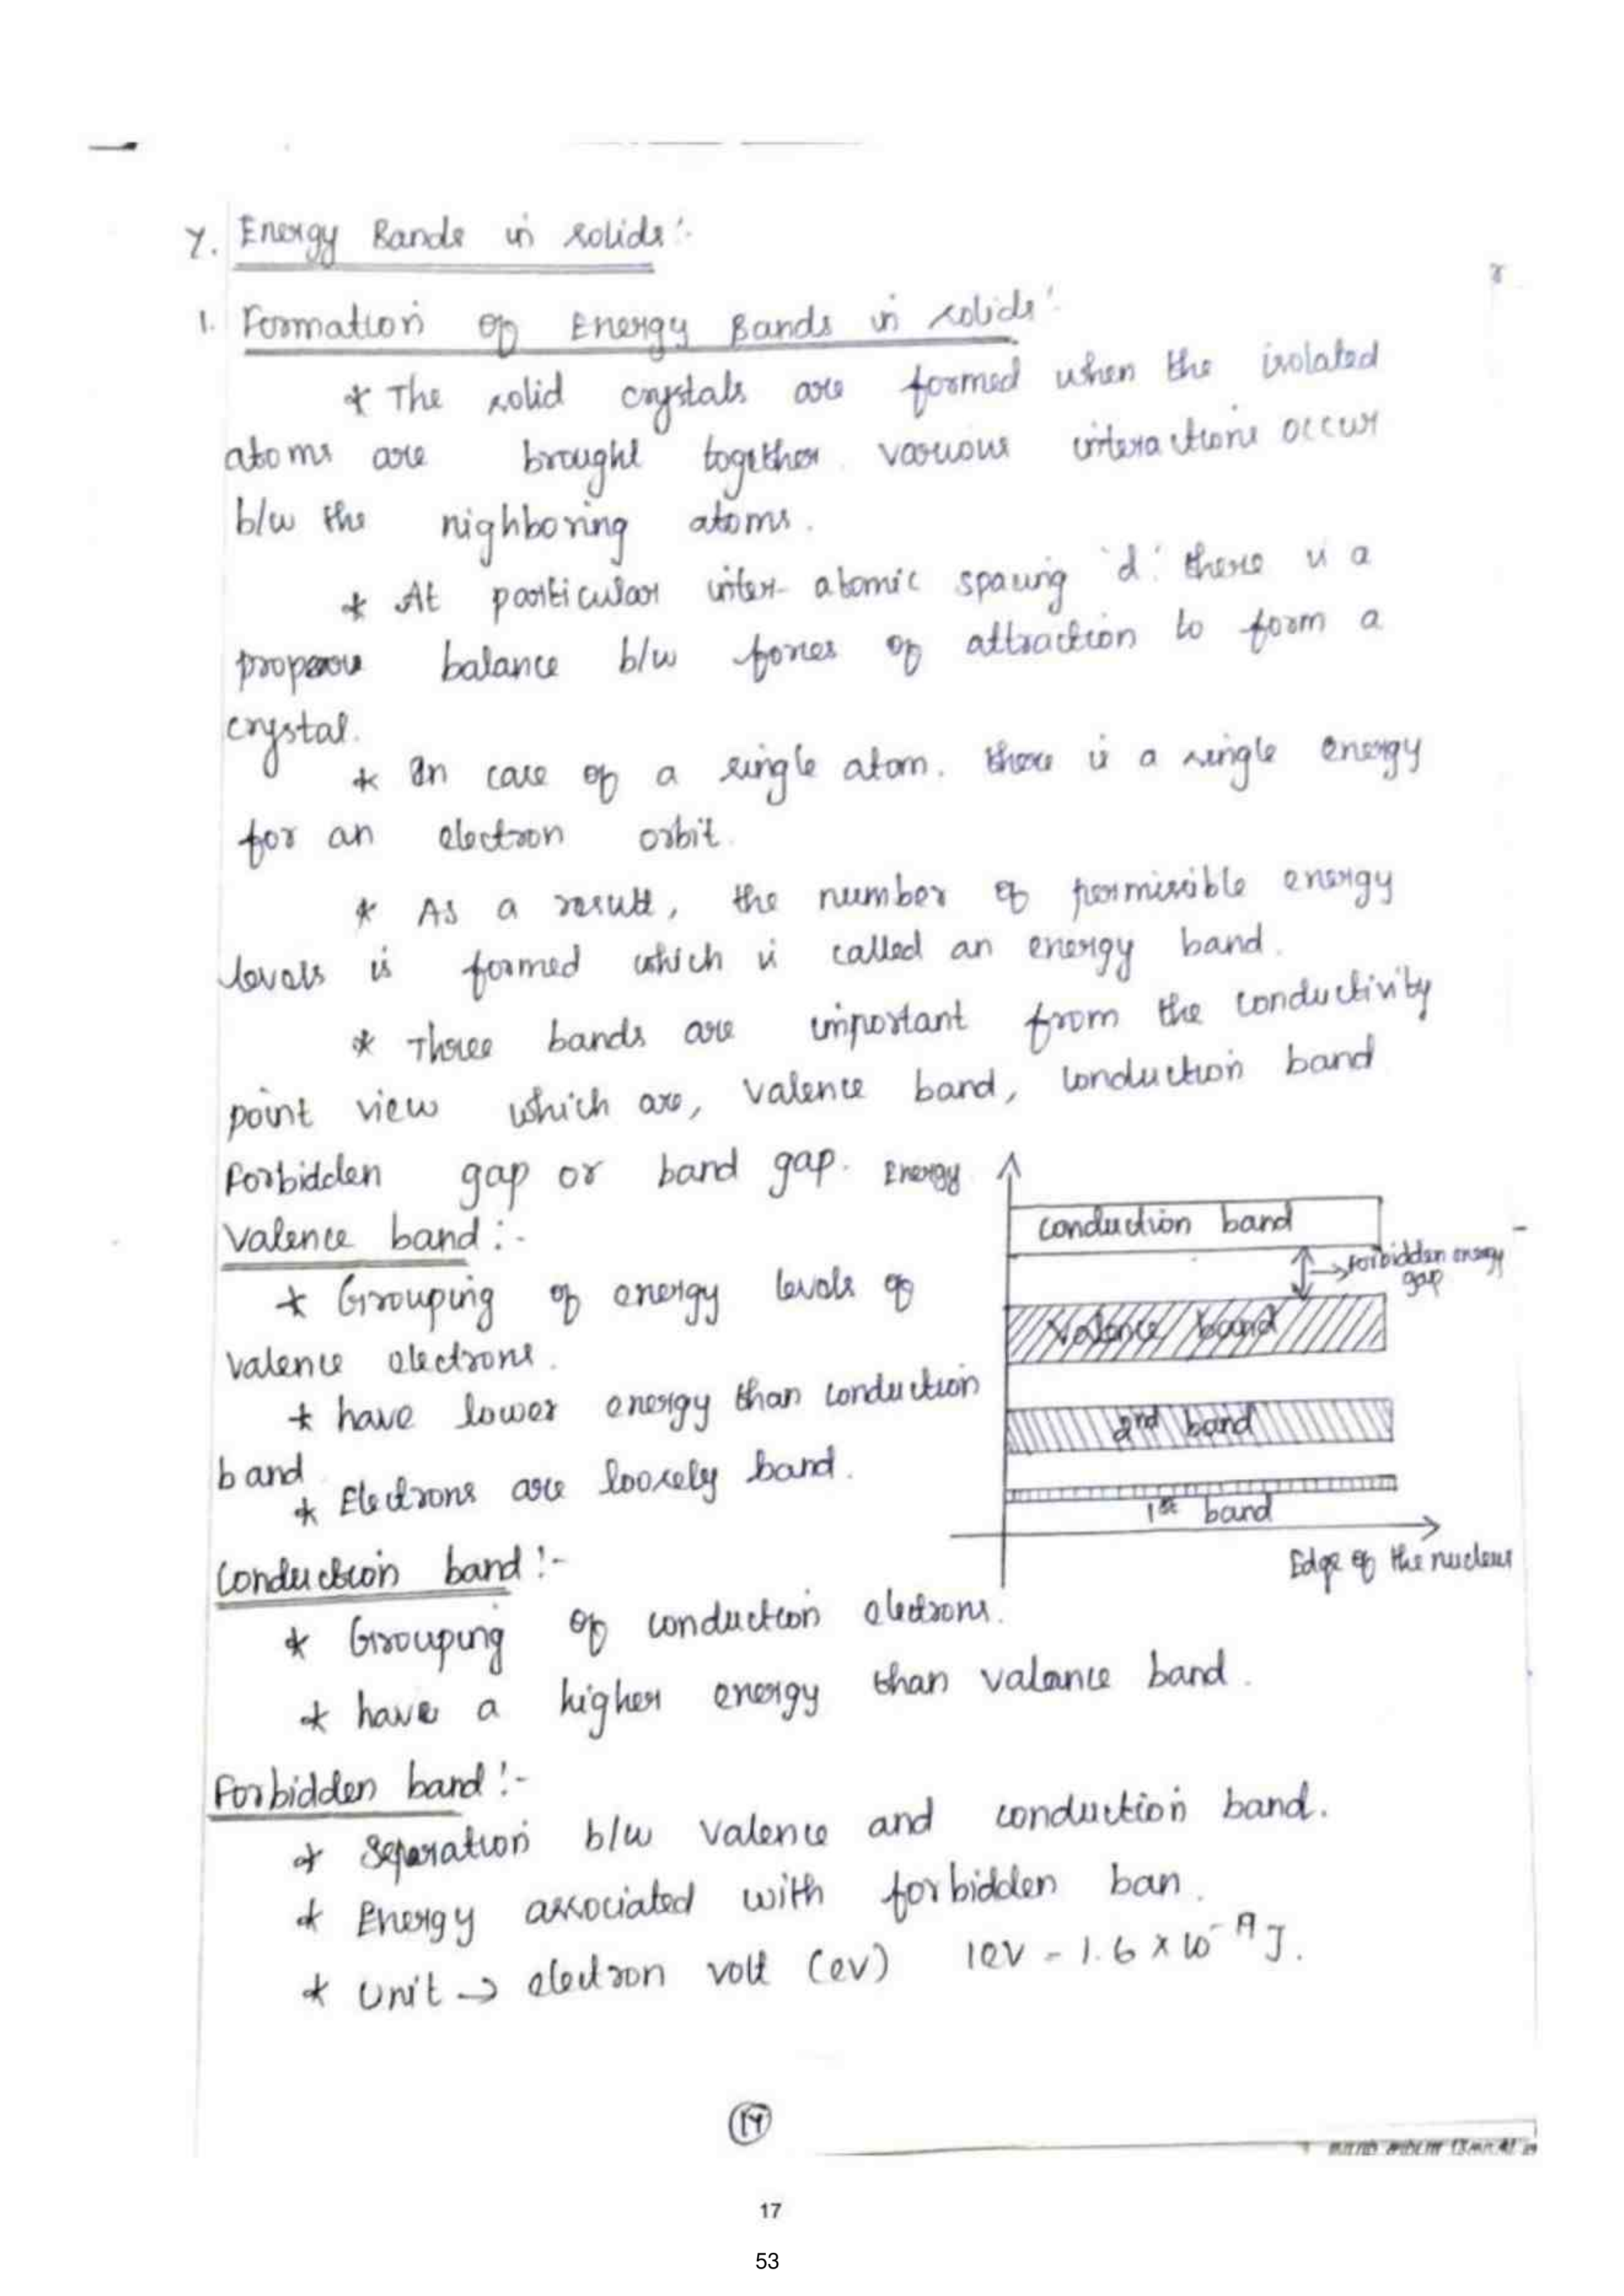 Y. Energy Bands in solids :-
1. Formation of Energy Bands in solids :
* The solid crystals are formed when the isolated
atoms are brought together. various interactions occur
b/w the nighboring atoms.
* At particular inter-atomic spacing 'd' there is a
balance b/w forces of attraction to form a
crystal.
* In case of a single atom. there is a single energy
for an electron orbit.
* As a result, the number of permissible energy
levels is formed which is called an energy band.
* Three bands are important from the conductivity
point view which are, valence band, conduction band
Forbidden gap or band gap.
Valence band :-
* Grouping of energy levels of
valence electrons.
* have lower energy than conduction
band
* Electrons are loosely band.
Energy
conduction band
→ Forbidden energy
gap
Valence band
2nd band
1st band
Edge of the nucleus
Conduction band :-
* Grouping of conduction electrons.
* have a higher energy than valance band.
Forbidden band :-
* Separation b/w valence and conduction band.
* Energy associated with forbidden ban.
* Unit → electron volt (ev) 1eV - 1.6 × 10⁻¹⁹ J.
17
53